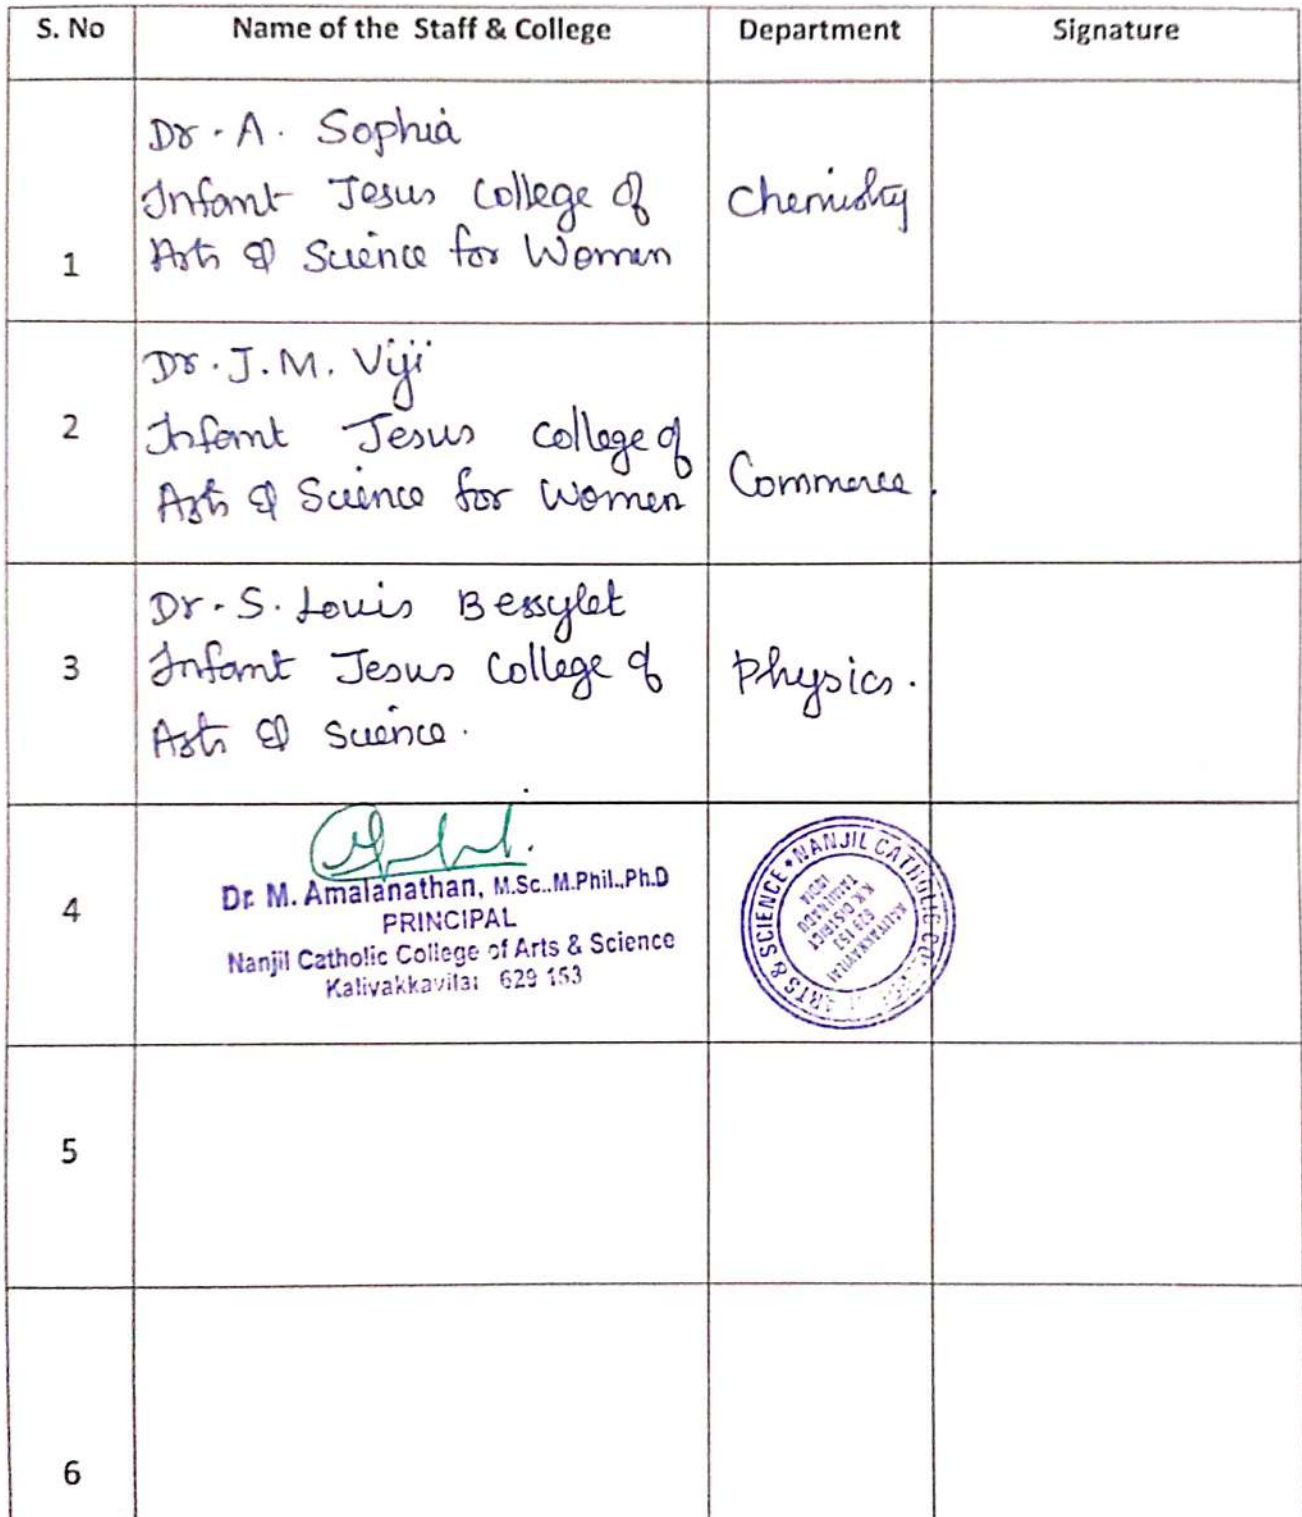 S. No Name of the Staff & College Department Signature
Dr. A. Sophia
Infant Jesus College of
Chemistry
1 Arts & Science for Women
Dr. J.M. Viji
2 Infant Jesus college of
Arts & Science for Women
Commerce.
Dr. S. Louis Bessylet
3 Infant Jesus College of
Physics.
Arts & Science.
4
Dr. M. Amalanathan, M.Sc.,M.Phil.,Ph.D
PRINCIPAL
Nanjil Catholic College of Arts & Science
Kaliyakkavilai 629 153
NANJIL CATHOLIC COLLEGE OF ARTS & SCIENCE
KALIYAKKAVILAI
629 153
K.K. DISTRICT
TAMILNADU
INDIA
5
6